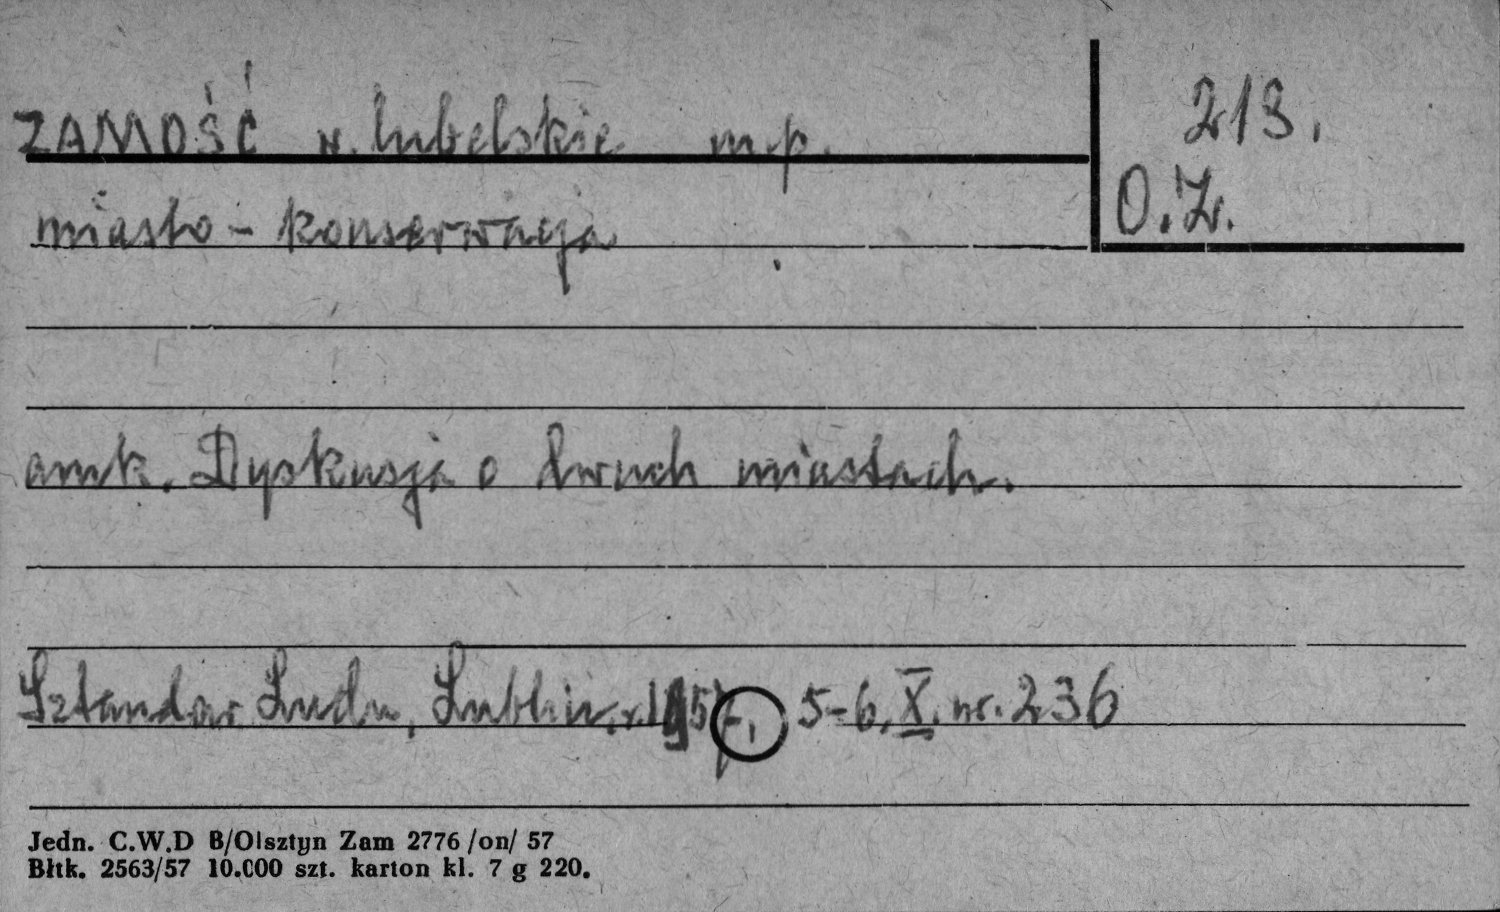 ZAMOŚĆ w. lubelskie m.p.
213.
O.Z.
miasto - konserwacja
amk. Dyskusja o dwuch miastach.
Sztandar Ludu, Lublin, r. 1957, 5-6, X. nr. 236
Jedn. C.W.D B/Olsztyn Zam 2776 /on/ 57
Błtk. 2563/57 10.000 szt. karton kl. 7 g 220.